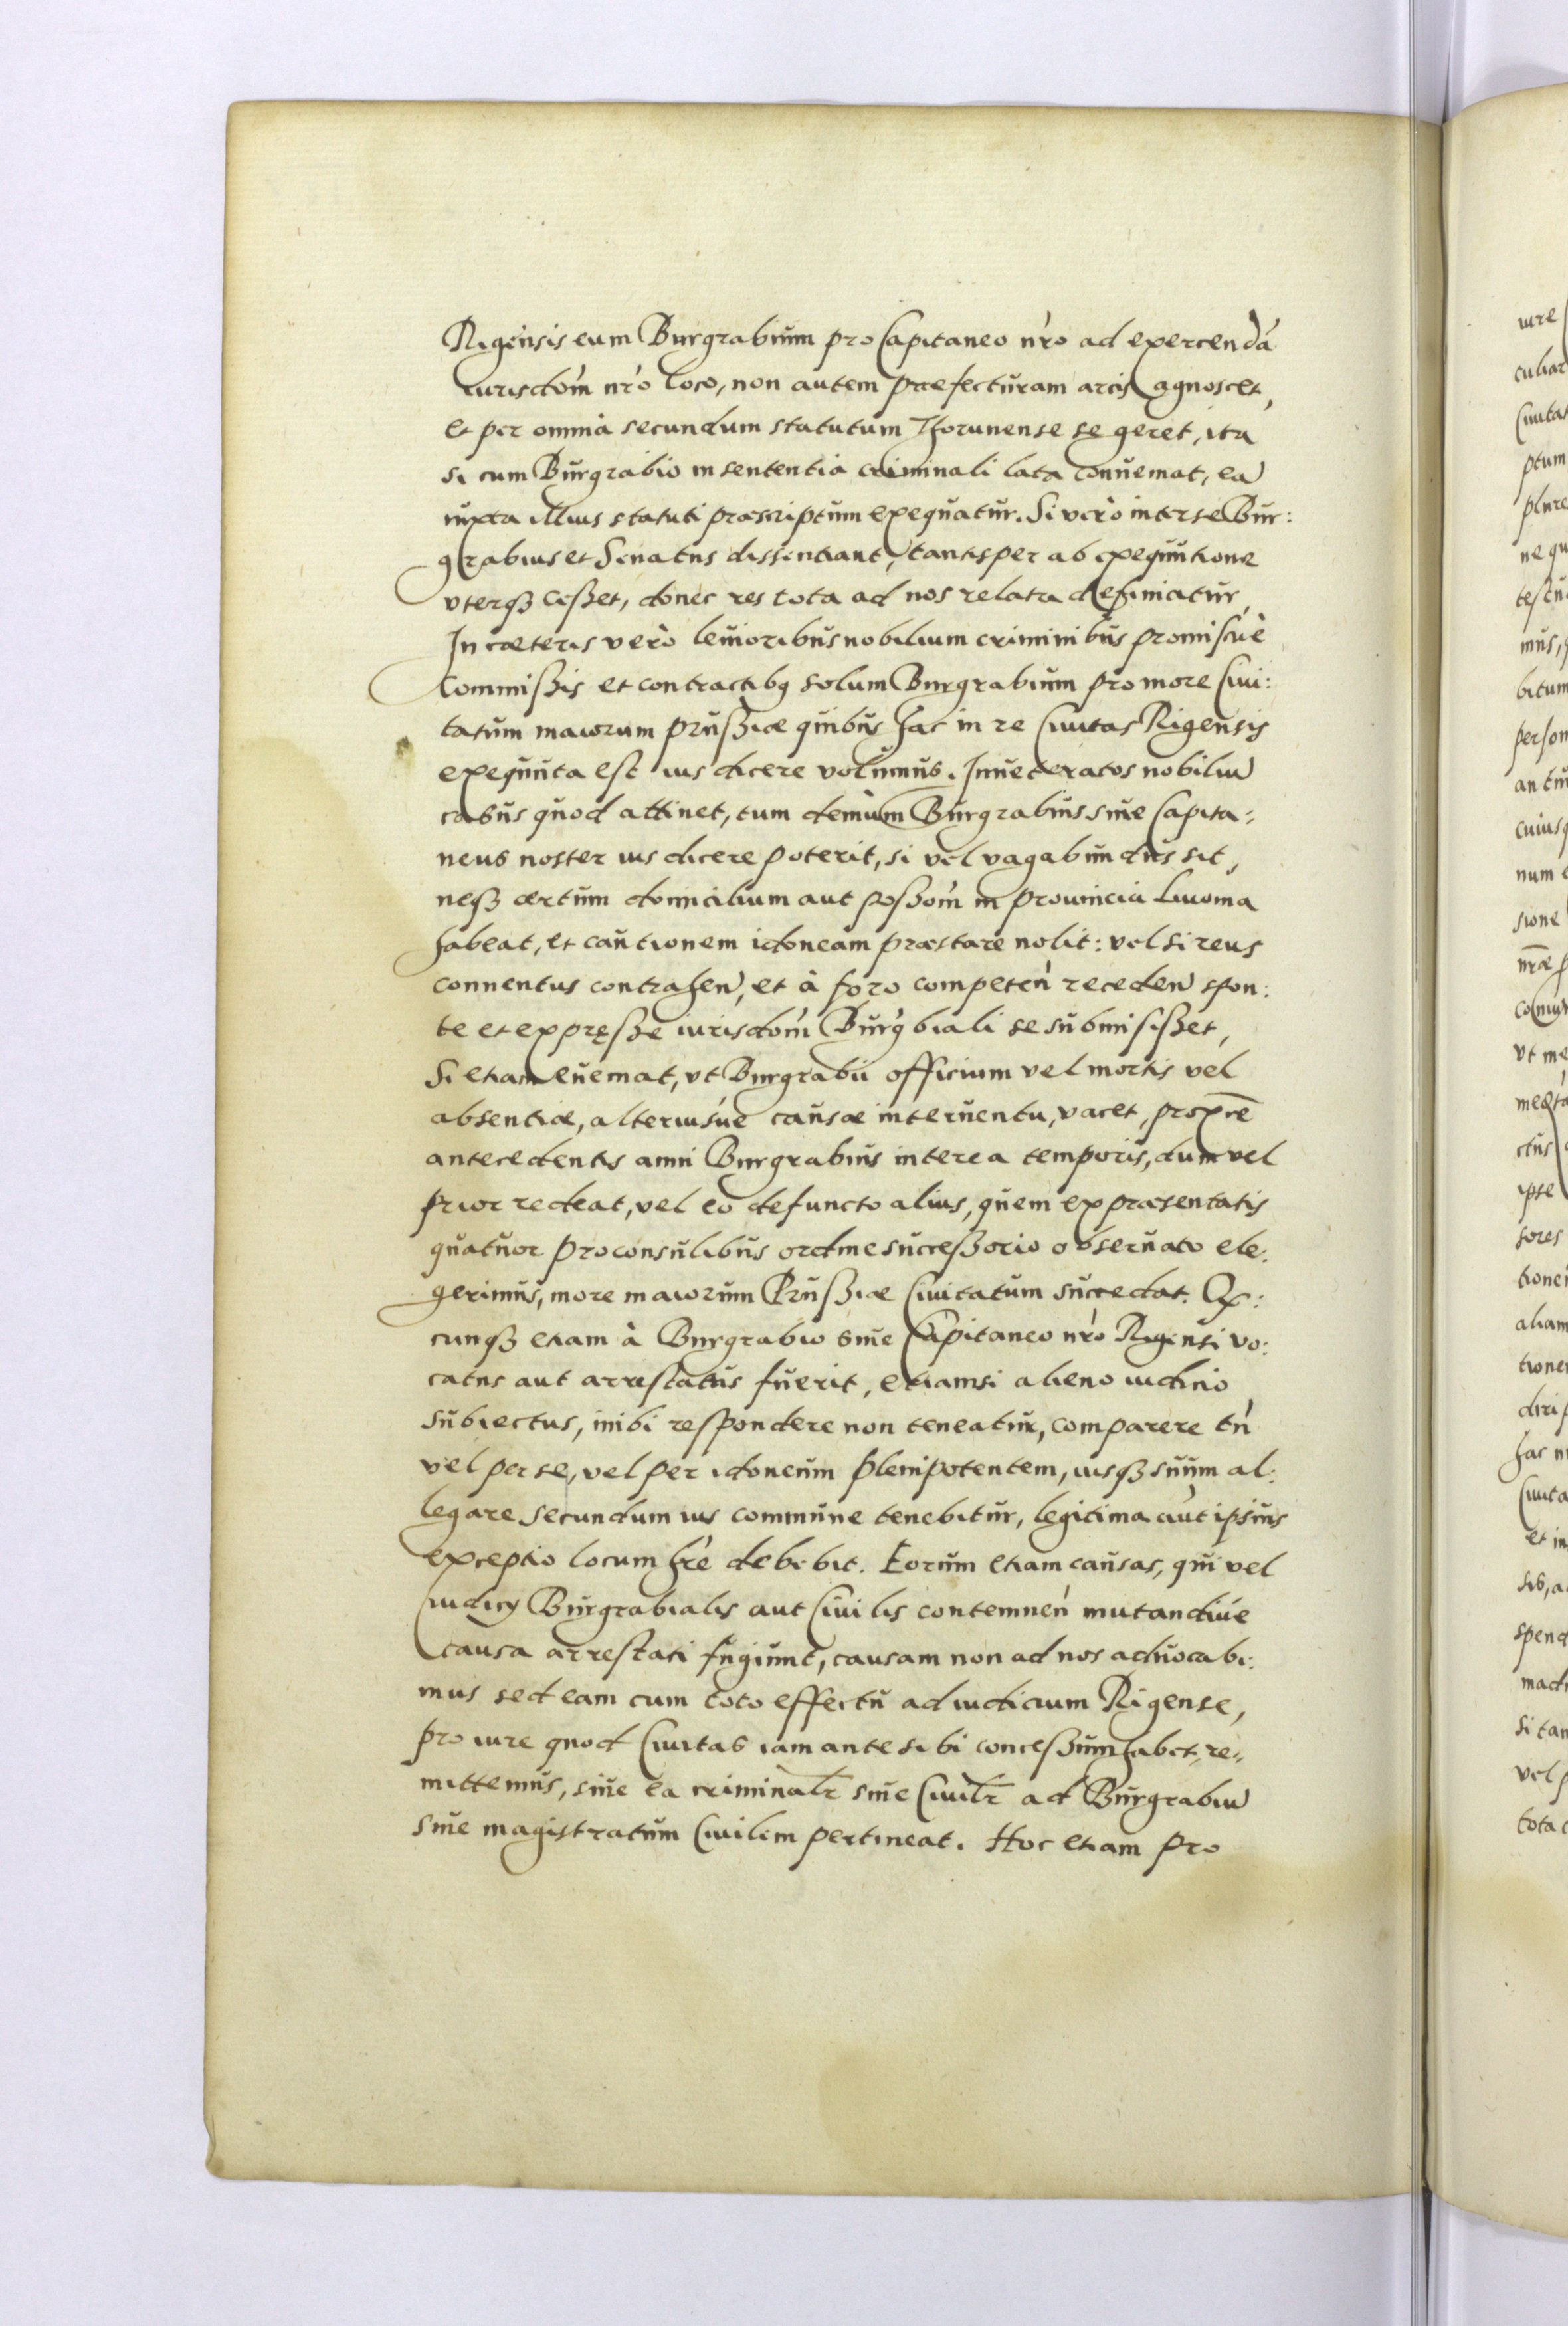 Rigensis eum Burgrabium pro Capitaneo nr̀o ad exercendá
iurisdóm nr̀o loco, non autem praefecturam arcis agnoscet,
et per omnia secundum statutum Thorunense se geret, ita
si cum Burgrabio in sententia criminali lata conueniat, ea
iuxta illius statuti praescriptum exequatur. Si verò inter se Bur:
grabius et Senatus dissentiant, tantisper ab exequutione
vterqȝ cesset, donec res tota ad nos relata definiatur,
In caeteris verò leuioribus nobilium criminibus promiscuè
Commissis et contractibꝰ solum Burgrabium pro more Ciui:
tatum maiorum prussiae quibus hac in re Ciuitas Rigensis
exequuta est ius dicere volumus. Inueteratos nobiliu
casus quod attinet, tum demùm Burgrabius siue Capita:
neus noster ius dicere poterit, si vel vagabundus sit,
neqȝ certum domicilium aut possóm in prouincia Liuonia
habeat, et cautionem idoneam praestare nolit: vel si reus
conuentus contrahen, et à foro competeń receden spon:
te et expręsse iurisdóm Burg̀biali se submisisset,
Si etiam eueniat, vt Burgrabii officium vel mortis vel
absentiae, alteriusúe causae interuentu, vacet, proxi͞e
antecedentis anni Burgrabius interea temporis, dum vel
prior redeat, vel eo defuncto alius, quem ex praesentatis
quatuor proconsulibus ordine successorio obseruato ele:
gerimus, more maiorum Prussiae Ciuitatum succedat. Q:
cunqȝ etiam à Burgrabio siue Capitaneo nr̀o Rigensi vo:
catus aut arrestatus fuerit, etiamsi alieno iudicio
subiectus, inibi respondere non teneatur, comparere tń
vel per se, vel per idoneum plenipotentem, iusqȝ suum al:
legare secundum ius commune tenebitur, legitima aút ipsius
exceptio locum hr̀e debebit. Eorum etiam causas, qui vel
iudicÿ Burgrabialis aut Ciuilis contemneń mutandiúe
causa arrestati fugiunt, causam non ad nos aduocabi:
mus sed eam cum toto effectu ad iudicium Rigense,
pro iure quod Ciuitas iam ante sibi concessum habet, re„
mittemus, siue ea criminalr̃ siue Ciuilr̃ ad Burgrabiu
siue magistratum Ciuilem pertineat. Hoc etiam pro